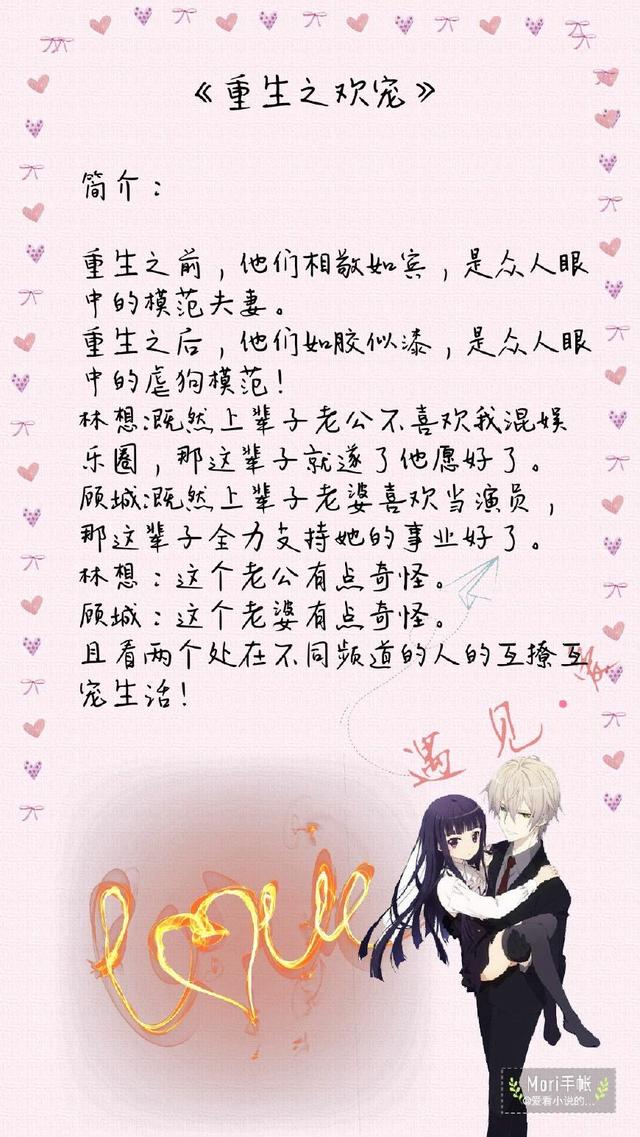 《重生之欢宠》
简介：
重生之前，他们相敬如宾，是众人眼
中的模范夫妻。
重生之后，他们如胶似漆，是众人眼
中的虐狗模范！
林想:既然上辈子老公不喜欢我混娱
乐圈，那这辈子就遂了他愿好了。
顾城:既然上辈子老婆喜欢当演员，
那这辈子全力支持她的事业好了。
林想：这个老公有点奇怪。
顾城：这个老婆有点奇怪。
且看两个处在不同频道的人的互撩互
宠生活！
遇见
love
Mori手帐
@爱看小说的...